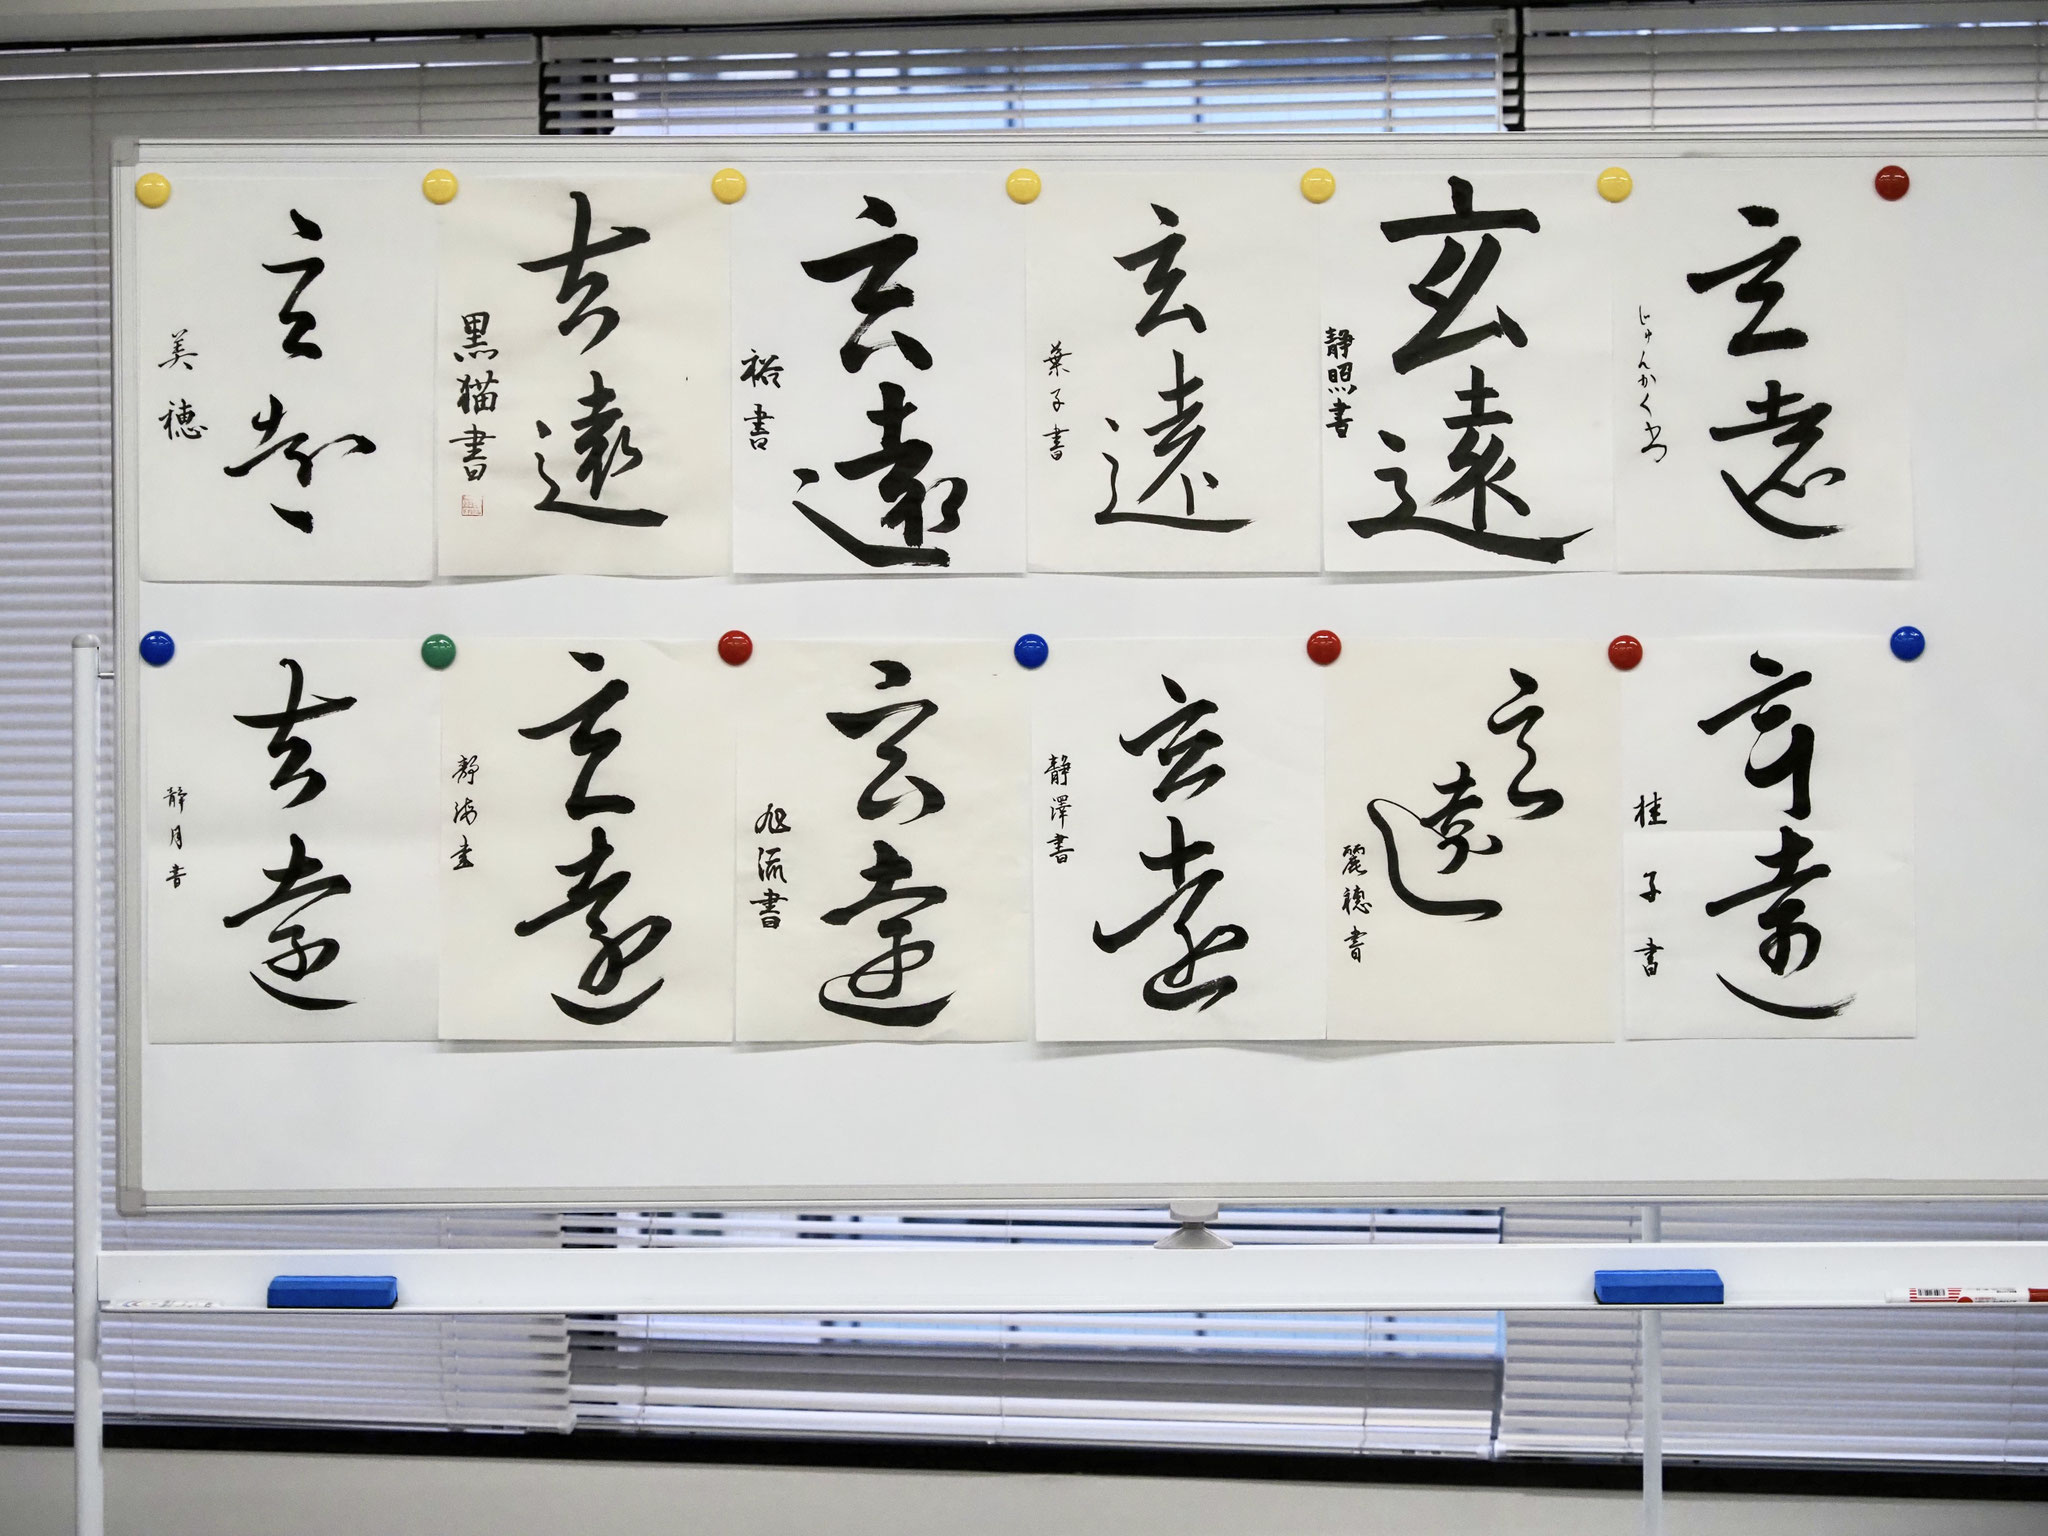 玄遠
美穂
玄遠
黒猫書
玄遠
裕書
玄遠
葉子書
玄遠
静照書
玄遠
じゅんかく書
玄遠
静月書
玄遠
静海書
玄遠
旭流書
玄遠
静澤書
玄遠
麗穂書
玄遠
桂子書